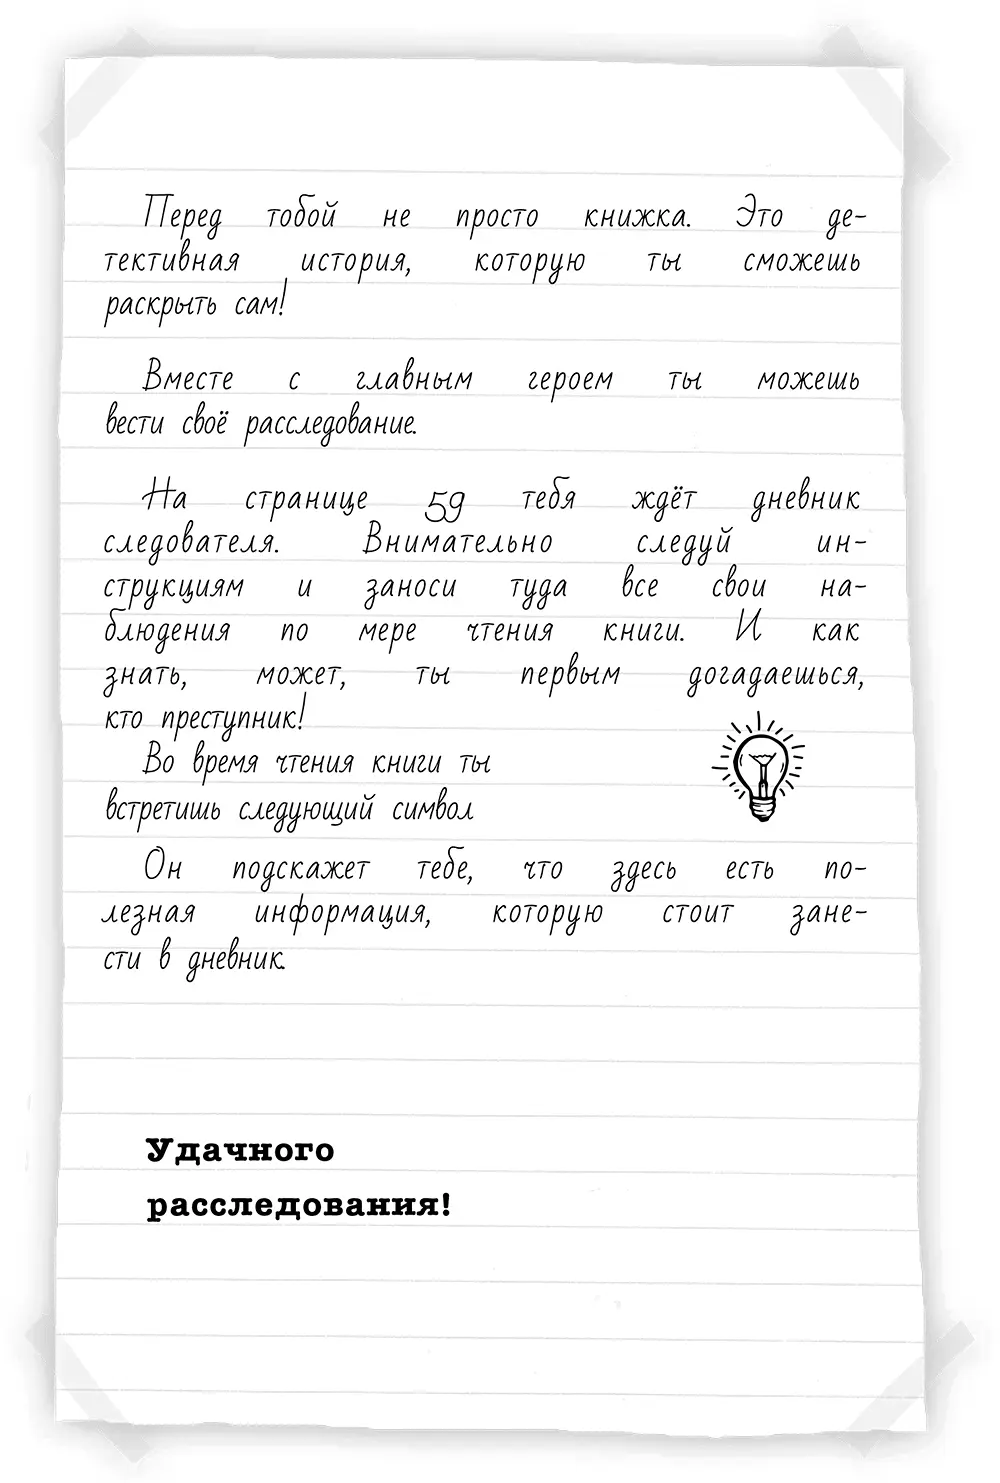 Перед тобой не просто книжка. Это де-
тективная история, которую ты сможешь
раскрыть сам!
Вместе с главным героем ты можешь
вести своё расследование.
На странице 59 тебя ждёт дневник
следователя. Внимательно следуй ин-
струкциям и заноси туда все свои на-
блюдения по мере чтения книги. И как
знать, может, ты первым догадаешься,
кто преступник!
Во время чтения книги ты
встретишь следующий символ
Он подскажет тебе, что здесь есть по-
лезная информация, которую стоит зане-
сти в дневник.
Удачного
расследования!